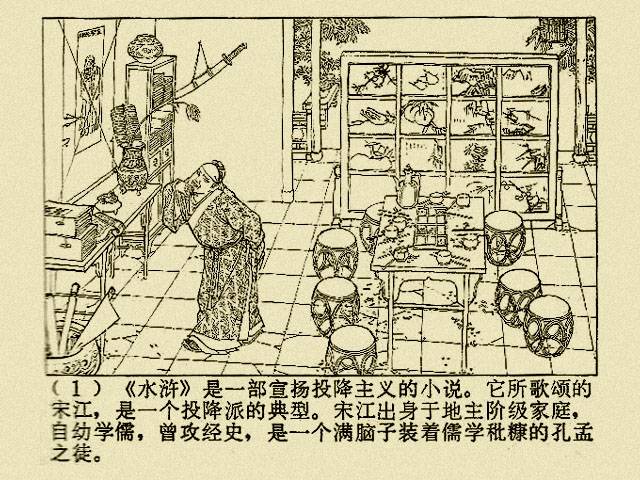 (1) 《水浒》是一部宣扬投降主义的小说。它所歌颂的
宋江，是一个投降派的典型。宋江出身于地主阶级家庭，
自幼学儒，曾攻经史，是一个满脑子装着儒学秕糠的孔孟
之徒。